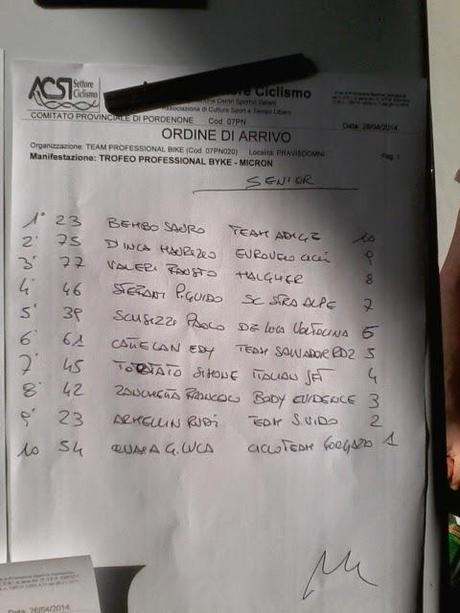 ACSI Settore Ciclismo
Settore Ciclismo
Associazione di Cultura Sport e Tempo Libero
COMITATO PROVINCIALE DI PORDENONE Cod. 07PN
Data: 26/04/2014
ORDINE DI ARRIVO
Organizzazione: TEAM PROFESSIONAL BIKE (Cod 07PN020) Località: PRAVISDOMINI
Pag. 1
Manifestazione: TROFEO PROFESSIONAL BYKE - MICRON
SENIOR
1° 23 BEMBO SAURO TEAM ADIGE 10
2° 75 D'INCA MAURIZIO EUROVELO CICLI 9
3° 77 VALERI FAUSTO MALGHER 8
4° 46 STEFANI P. GUIDO SC STRA ALPE 7
5° 39 PAOLO DE LUCA 6
6° 61 EDY TEAM SALVADOR 5
7° 45 SIMONE ITALIAN JET 4
8° 42 FRANCESCO BODY EVIDENCE 3
9° 23 ARMELLIN RUDI TEAM S.VIDO 2
10 54 G. LUCA CICLOTEAM GORGAZZO 1
Data: 26/04/2014